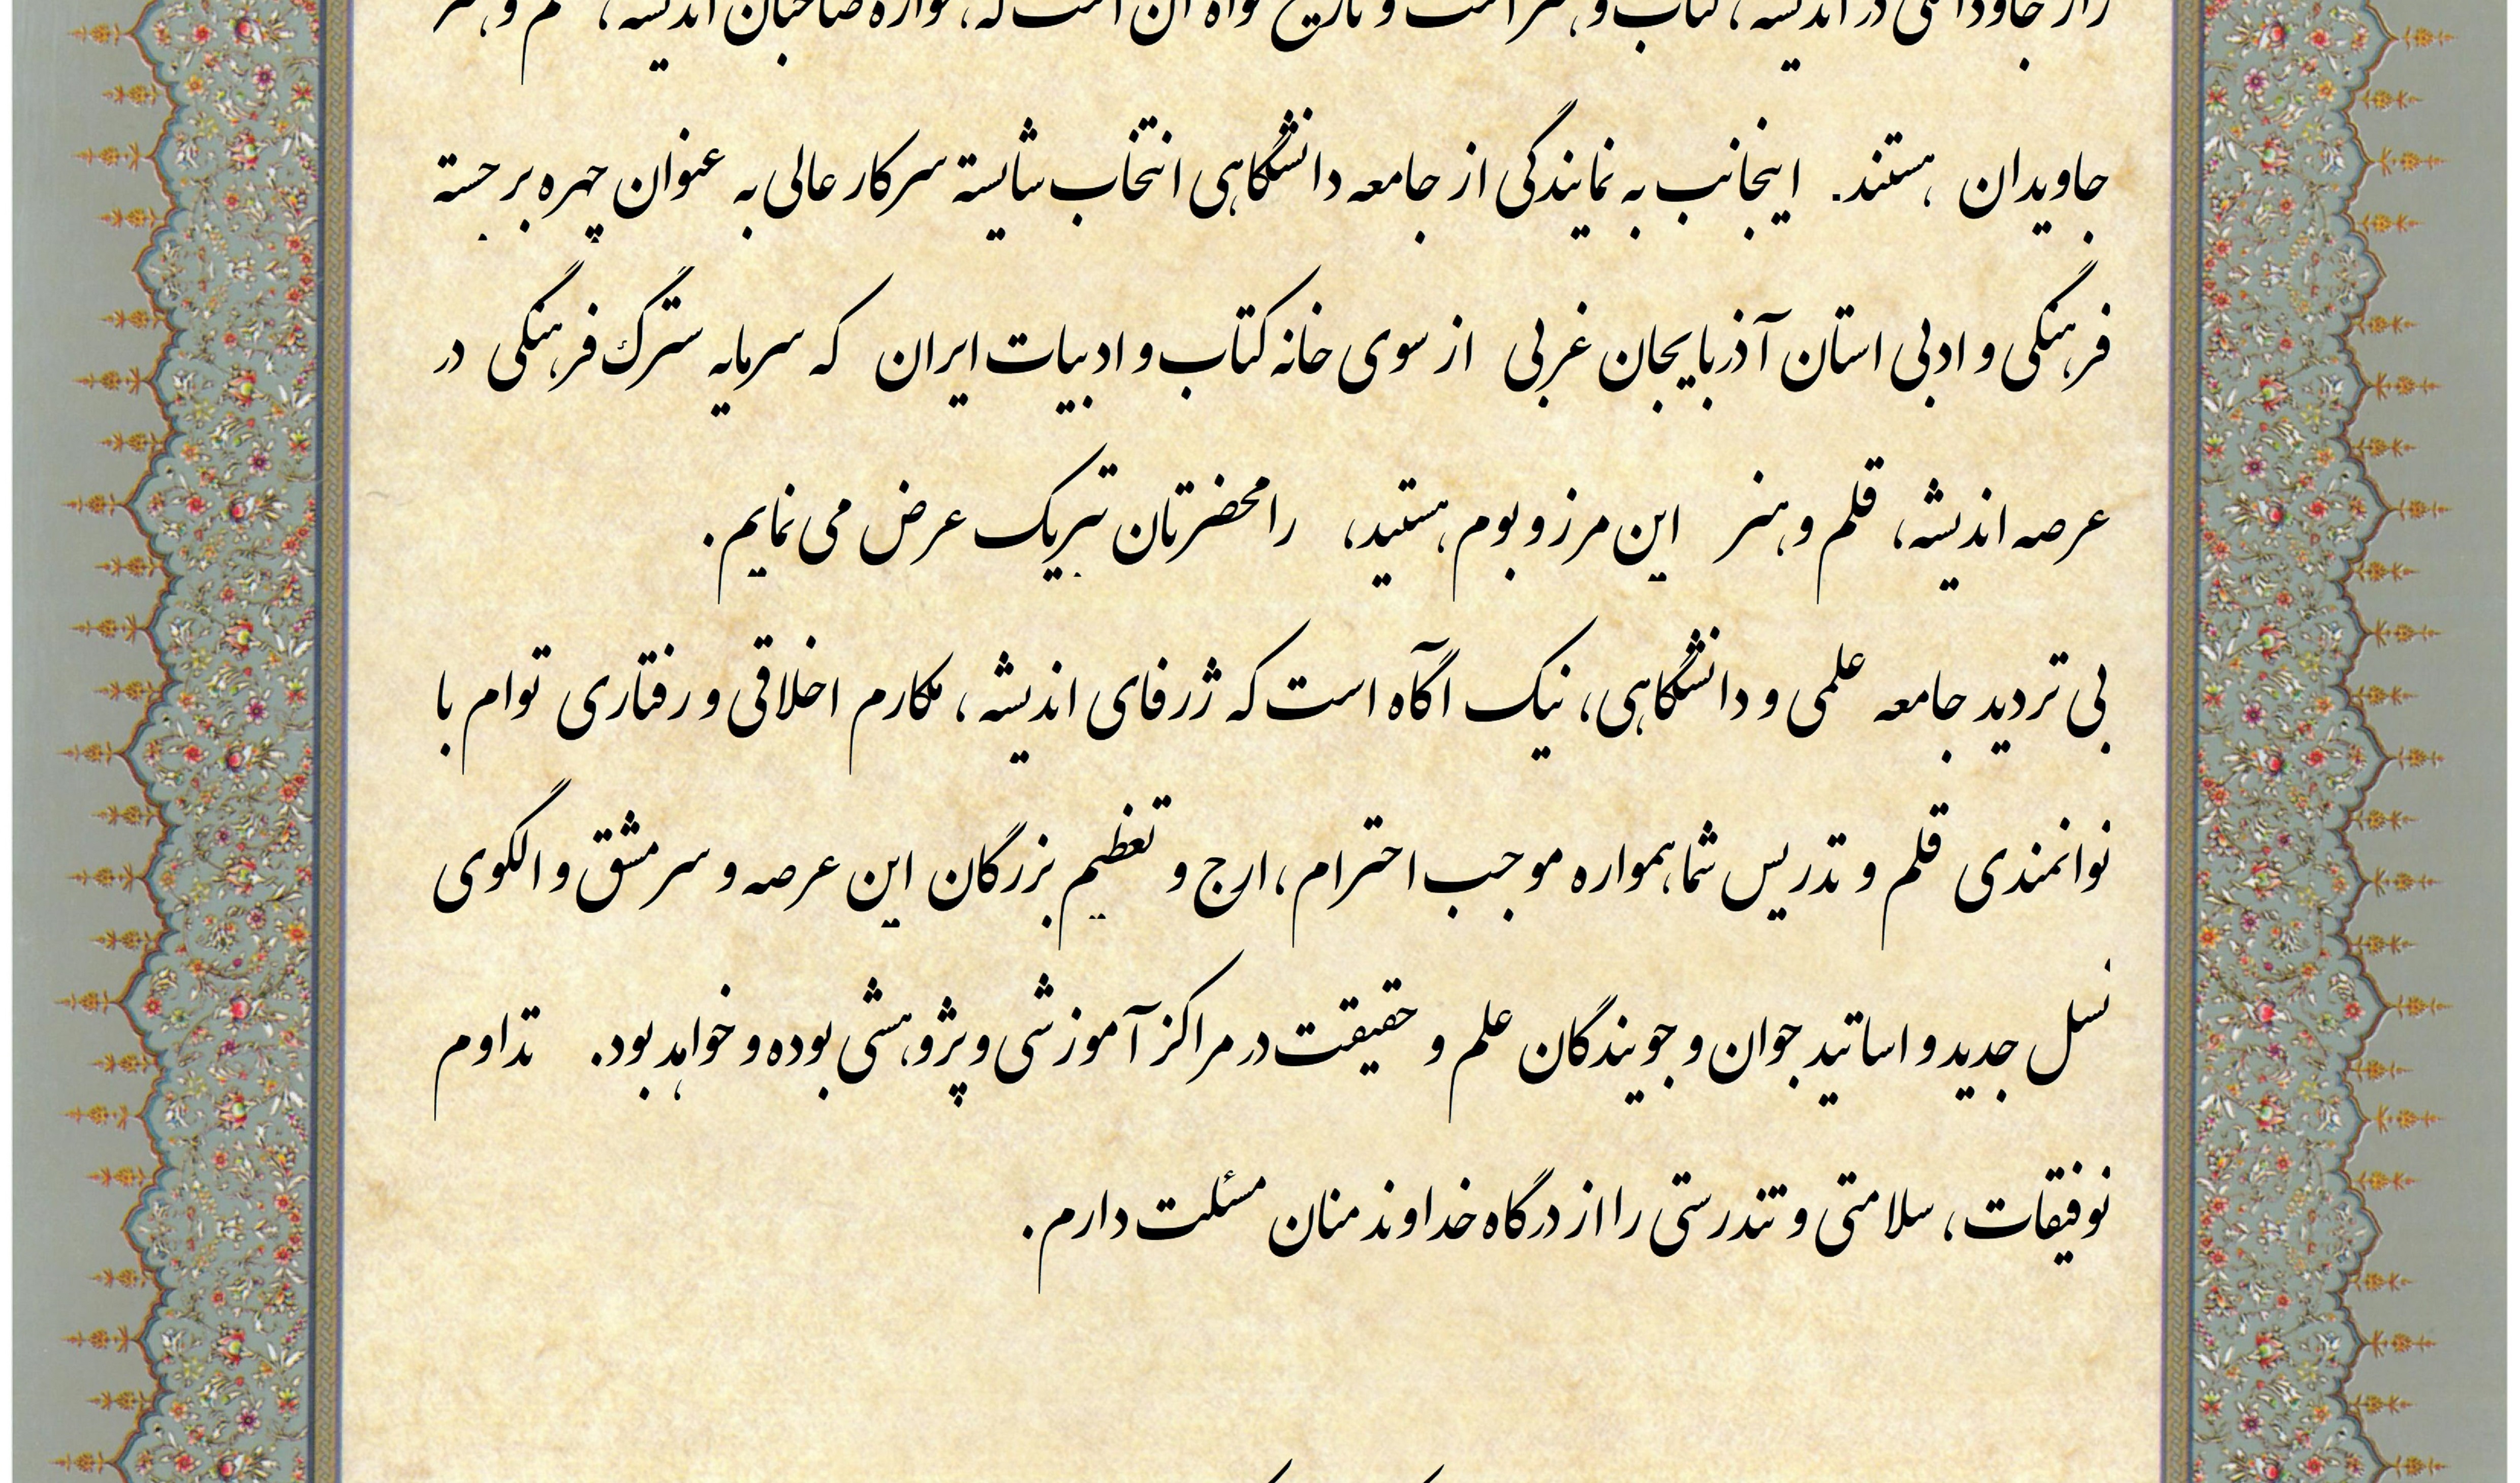 راز جاودانگی در اندیشه، کتاب و هنر است و تاریخ گواه آن است که همواره صاحبان اندیشه، قلم و هنر
جاویدان هستند. اینجانب به نمایندگی از جامعه دانشگاهی انتخاب شایسته سرکار عالی به عنوان چهره برجسته
فرهنگی و ادبی استان آذربایجان غربی از سوی خانه کتاب و ادبیات ایران که سرمایه سترگ فرهنگی در
عرصه اندیشه، قلم و هنر این مرز و بوم هستید، را محضرتان تبریک عرض می نمایم.
بی تردید جامعه علمی و دانشگاهی، نیک آگاه است که ژرفای اندیشه، مکارم اخلاقی و رفتاری توام با
توانمندی قلم و تدریس شما همواره موجب احترام، ارج و تعظیم بزرگان این عرصه و سرمشق و الگوی
نسل جدید و اساتید جوان و جویندگان علم و حقیقت در مراکز آموزشی و پژوهشی بوده و خواهد بود. تداوم
توفیقات، سلامتی و تندرستی را از درگاه خداوند منان مسئلت دارم.